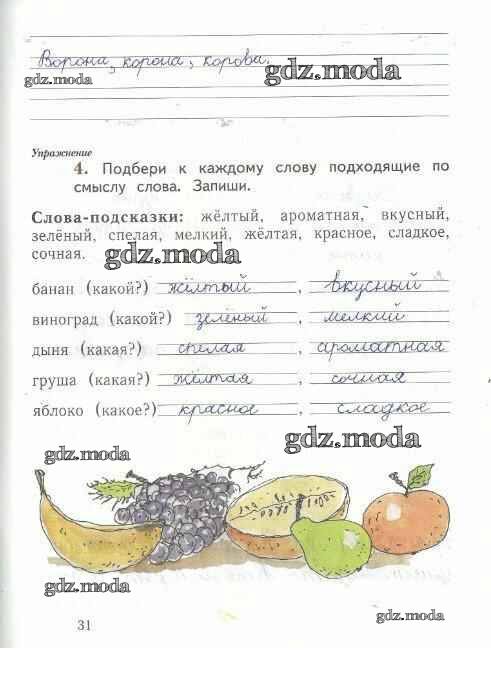 Ворона, корона, корова.
gdz.moda gdz.moda
Упражнение
4. Подбери к каждому слову подходящие по
смыслу слова. Запиши.
Слова-подсказки: жёлтый, ароматная, вкусный,
зелёный, спелая, мелкий, жёлтая, красное, сладкое,
сочная. gdz.moda
банан (какой?) жёлтый, вкусный
виноград (какой?) зелёный, мелкий
дыня (какая?) спелая, ароматная
груша (какая?) жёлтая, сочная
яблоко (какое?) красное, сладкое
gdz.moda
gdz.moda
gdz.moda
31
gdz.moda